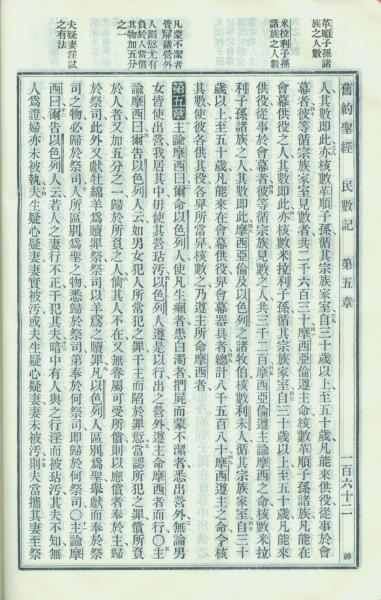 舊約聖經 民數記 第五章 一百六十二
革順子孫諸
族之人數
米拉利子孫
諸族之人數
凡蒙不潔者
皆屏諸營外
人蹈愆尤有
負於人當償
其物加五分
之一
夫疑妻淫試
之有法
人其數即此亦核數革順子孫循其宗族家室自三十歲以上至五十歲凡能來供役從事於會
幕者彼等循宗族家室見數者共二千六百三十摩西亞倫遵主命核數革順子孫諸族凡能在
會幕供役之人其數即此亦核數米拉利子孫循其宗族家室自三十歲以上至五十歲凡能來
供役從事於會幕者彼等循宗族見數之人共三千二百摩西亞倫遵主諭摩西之命核數米拉
利子孫諸族之人其數即此摩西亞倫及以色列之諸牧伯核數利未人循其宗族家室自三十
歲以上至五十歲凡能來在會幕供役舁會幕器具者總計八千五百八十摩西遵主之命令核
其數使彼各供其役各舁所當舁核數之乃遵主所命摩西者
第五章 主諭摩西曰爾命以色列人使凡生癩者患白濁者捫屍而蒙不潔者悉出營外無論男
女皆使出營我居其中毋使其營玷污以色列人遵是以行出之營外遵主命摩西者而行〇主
諭摩西曰爾告以色列人云如男女犯人所常犯之罪干主而陷於罪愆當認所犯之罪償所負
於人者又加五分之一歸於所負之人倘其人不在又無眷屬可受所償則以應償者奉於主歸
於祭司此外又獻牡綿羊為贖罪祭祭司以羊為之贖罪凡以色列人區別為聖之舉獻而奉祭
司之物必歸於祭司人所區別為聖之物悉歸於祭司第奉於何祭司即歸於何祭司〇主諭摩
西曰爾告以色列人云若人之妻行不正干犯其夫暗中有人與之行淫而被玷污其夫不知無
人為證婦亦未被執夫生疑心疑妻妻實被污或夫生疑心疑妻妻未被污則夫當攜其妻至祭